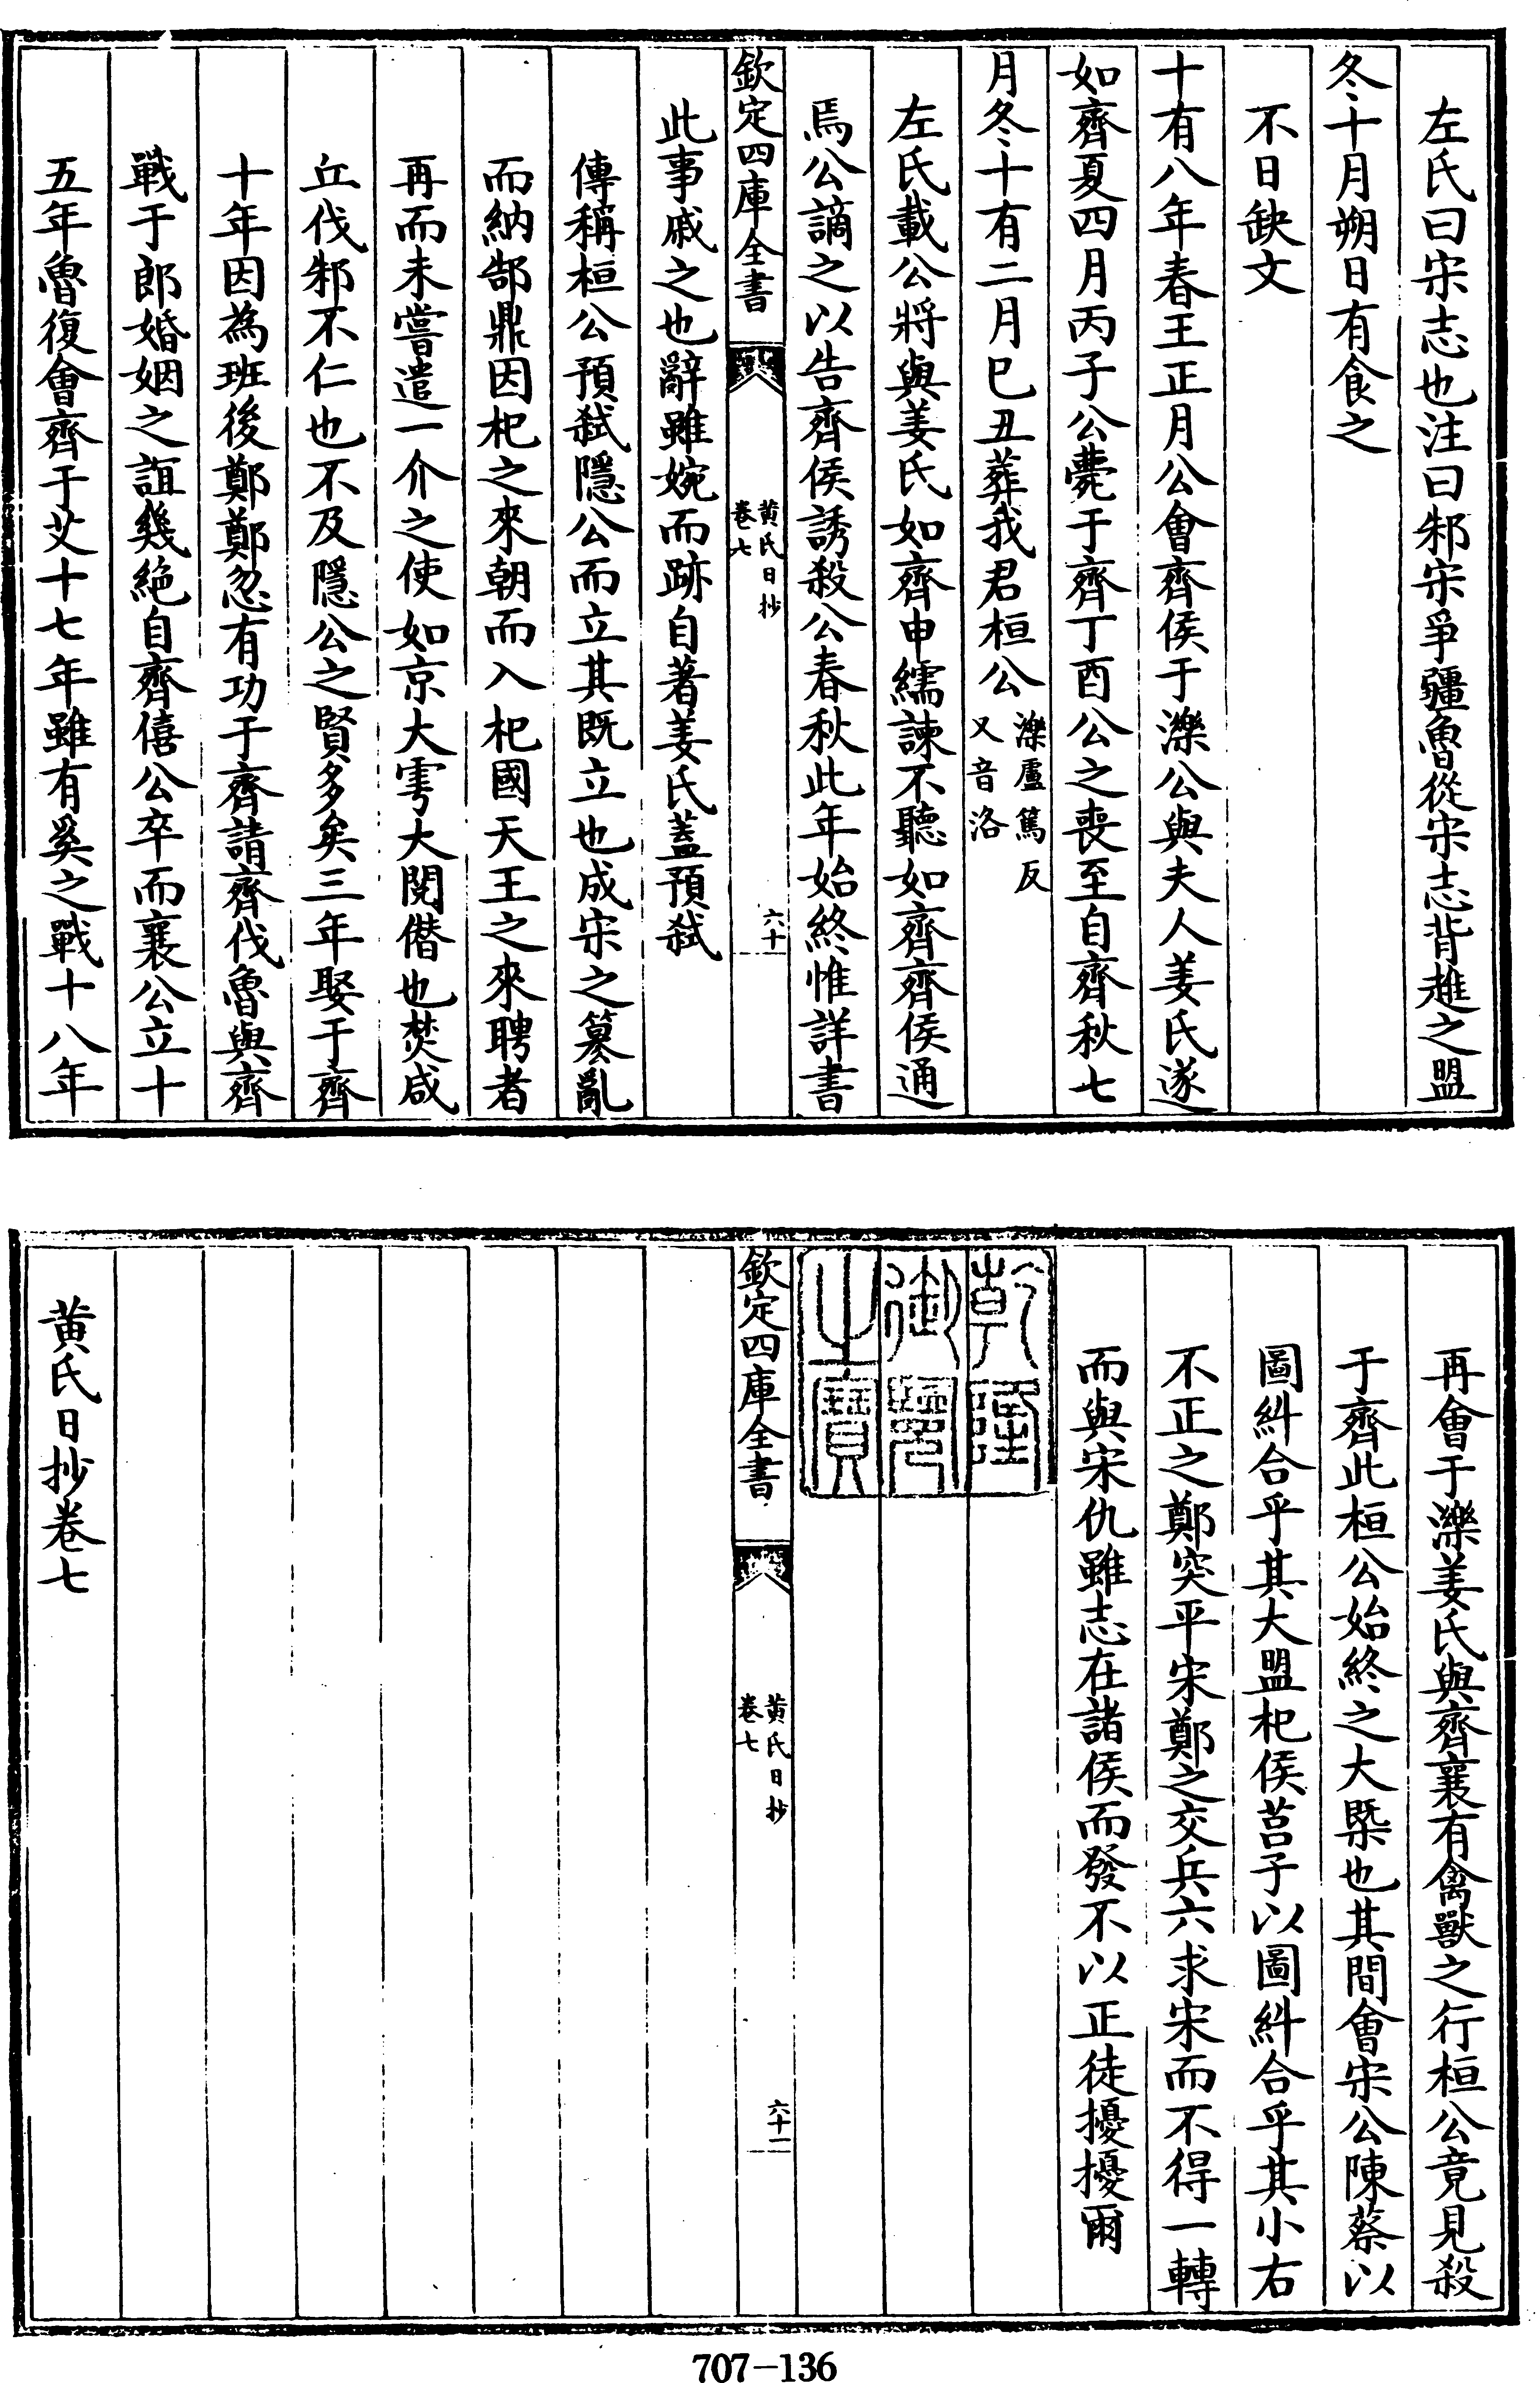 左氏曰宋志也注曰邾宋爭疆魯從宋志背趡之盟
冬十月朔日有食之
不日缺文
十有八年春王正月公會齊侯于濼公與夫人姜氏遂
如齊夏四月丙子公薨于齊丁酉公之喪至自齊秋七
月冬十有二月巳丑葬我君桓公濼盧篤反
又音洛
左氏載公將與姜氏如齊申繻諫不聽如齊齊侯通
焉公謫之以告齊侯誘殺公春秋此年始終惟詳書
欽定四庫全書
黃氏日抄
卷七
六十
此事戚之也辭雖婉而跡自著姜氏蓋預弑
傳稱桓公預弑隱公而立其既立也成宋之篡亂
而納郜鼎因杞之來朝而入杞國天王之來聘者
再而未嘗遣一介之使如京大雩大閱僭也焚咸
丘伐邾不仁也不及隱公之賢多矣三年娶于齊
十年因為班後鄭鄭忽有功于齊請齊伐魯與齊
戰于郎婚姻之誼幾絶自齊僖公卒而襄公立十
五年魯復會齊于艾十七年雖有奚之戰十八年
再會于濼姜氏與齊襄有禽獸之行桓公竟見殺
于齊此桓公始終之大槩也其間會宋公陳蔡以
圖糾合乎其大盟杞侯莒子以圖糾合乎其小右
不正之鄭突平宋鄭之交兵六求宋而不得一轉
而與宋仇雖志在諸侯而發不以正徒擾擾爾
乾隆
御覽
之寶
欽定四庫全書
黃氏日抄
卷七
六十一
黃氏日抄卷七
707-136